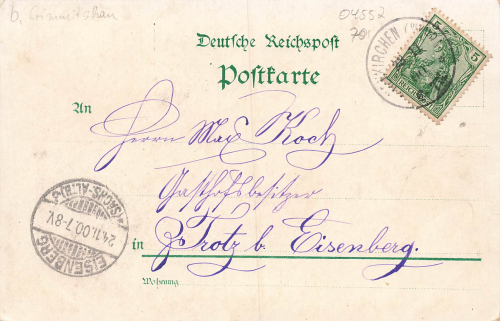 b. Crimmitschau
04552
70
Deutsche Reichspost
Postkarte
KIRCHEN
5
An
Herrn Max Koch
Gasthofsbesitzer
in Trotz b. Eisenberg.
Wohnung
EISENBERG
24.11.00.7-8V.
(SACHS.-ALTBG.)